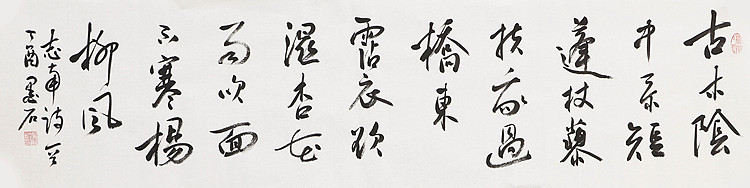 古木陰
中系短
蓬杖藜
扶我過
橋東
霑衣欲
濕杏花
雨吹面
不寒楊
柳風
志南詩
丁酉墨石